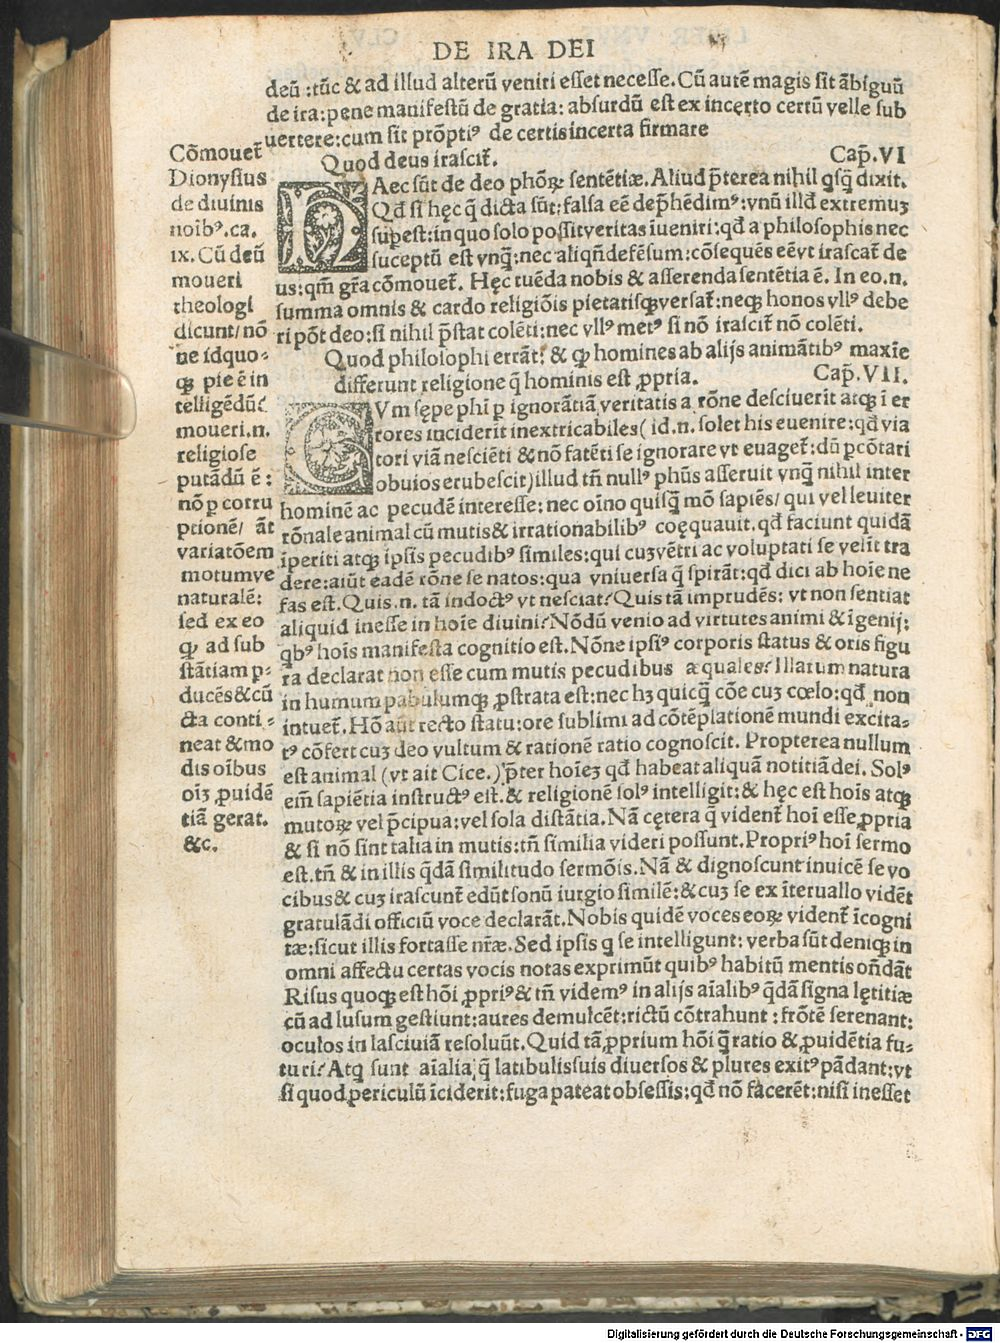 DE IRA DEI
deū :tūc & ad illud alterū veniri esset necesse. Cū autē magis sit ābiguū
de ira: pene manifestū de gratia: absurdū est ex incęrto certū velle sub
uertere: cum sit prōptiꝰ de certis incerta firmare
Quod deus irascit᷑. Cap̄. VI
HAec sūt de deo phōꝝ sentētiæ. Aliud p̄terea nihil qͥsq̄ dixit.
Qd̄ si hęc q̄ dicta sūt: falsa eē dep̄hēdimꝰ: vnū illd̄ extremuꝫ
suꝑest: in quo solo possit veritas iueniri: qd̄ a philosophis nec
susceptū est vnq̄: nec aliqn̄ defēsum: cōsequēs eē vt irascat᷑ de
us: qm̄ gr̄a cōmouet᷑. Hęc tuēda nobis & asserenda sentētia ē. In eo .n.
summa omnis & cardo religiōis pietatisqꝫ versat᷑: neqꝫ honos vllꝰ debe
ri pōt deo: si nihil p̄stat colēti: nec vllꝰ metꝰ si nō irascit᷑ nō colēti.
Quod philosophi errāt: & ꝙ homines ab alijs animātibꝰ maxīe
differunt religione q̄ hominis est ꝓpria. Cap̄. VII.
CVm sępe phi ꝑ ignorātiā veritatis a rōne desciuerīt atqꝫ ī er
rores inciderīt inextricabiles ( id .n. solet his euenire: qd̄ via
tori viā nesciēti & nō fatēti se ignorare vt euaget᷑: dū ꝑcōtari
obuios erubescit) illud tn̄ nullꝰ phūs asseruit vnq̄ nihil inter
hominē ac pecudē interesse: nec oīno quisq̄ mō sapiēs/ qui vel leuiter
rōnale animal cū mutis & irrationabilibꝰ coęquauit. qd̄ faciunt quidā
īperiti atqꝫ ipsis pecudibꝰ similes: qui cuꝫ vētri ac voluptati se velīt tra
dere: aiūt eadē rōne se natos: qua vniuersa q̄ spirāt: qd̄ dici ab hoīe ne
fas est. Quis .n. tā indoctꝰ vt nesciat? Quis tā imprudēs: vt non sentiat
aliquid inesse in hoīe diuini? Nōdū venio ad virtutes animi & īgenij:
qͥbꝰ hoīs manifesta cognitio est. Nōne ipsiꝰ corporis status & oris figu
ra declarat non esse cum mutis pecudibus æquales? Illarum natura
in humum pabulumqꝫ ꝓstrata est: nec hꝫ quicq̄ cōe cuꝫ cœlo: qd̄ non
intuet᷑. Hō aūt recto statu: ore sublimi ad cōtēplationē mundi excita-
tꝰ cōfert cuꝫ deo vultum & rationē ratio cognoscit. Propterea nullum
est animal (vt ait Cice.) p̄ter hoīeꝫ qd̄ habeat aliquā notitiā dei. Solꝰ
em̄ sapiētia instructꝰ est. & religionē solꝰ intelligit: & hęc est hoīs atqꝫ
mutoꝝ vel p̄cipua: vel sola distātia. Nā cętera q̄ vident᷑ hoī esse ꝓpria
& si nō sint talia in mutis: tn̄ similia videri possunt. Propriꝰ hoī sermo
est. tn̄ & in illis q̄dā similitudo sermōis. Nā & dignoscunt inuicē se vo
cibus & cuꝫ irascunt᷑ edūt sonū iurgio similē: & cuꝫ se ex īteruallo vidēt
gratulādi officiū voce declarāt. Nobis quidē voces eoꝝ vident᷑ īcogni
tæ: sicut illis fortasse nr̄æ. Sed ipsis q se intelligunt: verba sūt deniqꝫ in
omni affectu certas vocis notas exprimūt quibꝰ habitū mentis on̄dāt
Risus quoqꝫ est hōi ꝓpriꝰ & tn̄ videmꝰ in alijs aīalibꝰ q̄dā signa lętitiæ
cū ad lusum gestiunt: aures demulcēt: rictū cōtrahunt : frōtē serenant:
oculos in lasciuiā resoluūt. Quid tā ꝓprium hōi q̄ ratio & ꝓuidētia fu-
turi? Atq sunt aīalia q̄ latibulis suis diuersos & plures exitꝰ pādant: vt
si quod periculū īciderit: fuga pateat obsessis: qd̄ nō facerēt: nisi inesset
Cōmouet᷑
Dionysius
de diuinis
noibꝰ. ca.
ix. Cū deū
moueri
theologi
dicunt/ nō
ne id quo-
qꝫ pie ē in
telligēdū?
moueri .n.
religiose
putādū ē :
nō ꝑ corru
ptionē/ āt
variatōem
motumve
naturalē:
sed ex eo
ꝙ ad sub
stātiam ꝑ-
ducēs & cū
cta conti-
neat & mo
dis oībus
oīꝫ ꝓuidē
tiā gerat.
&c.
Digitalisierung gefördert durch die Deutsche Forschungsgemeinschaft - DFG